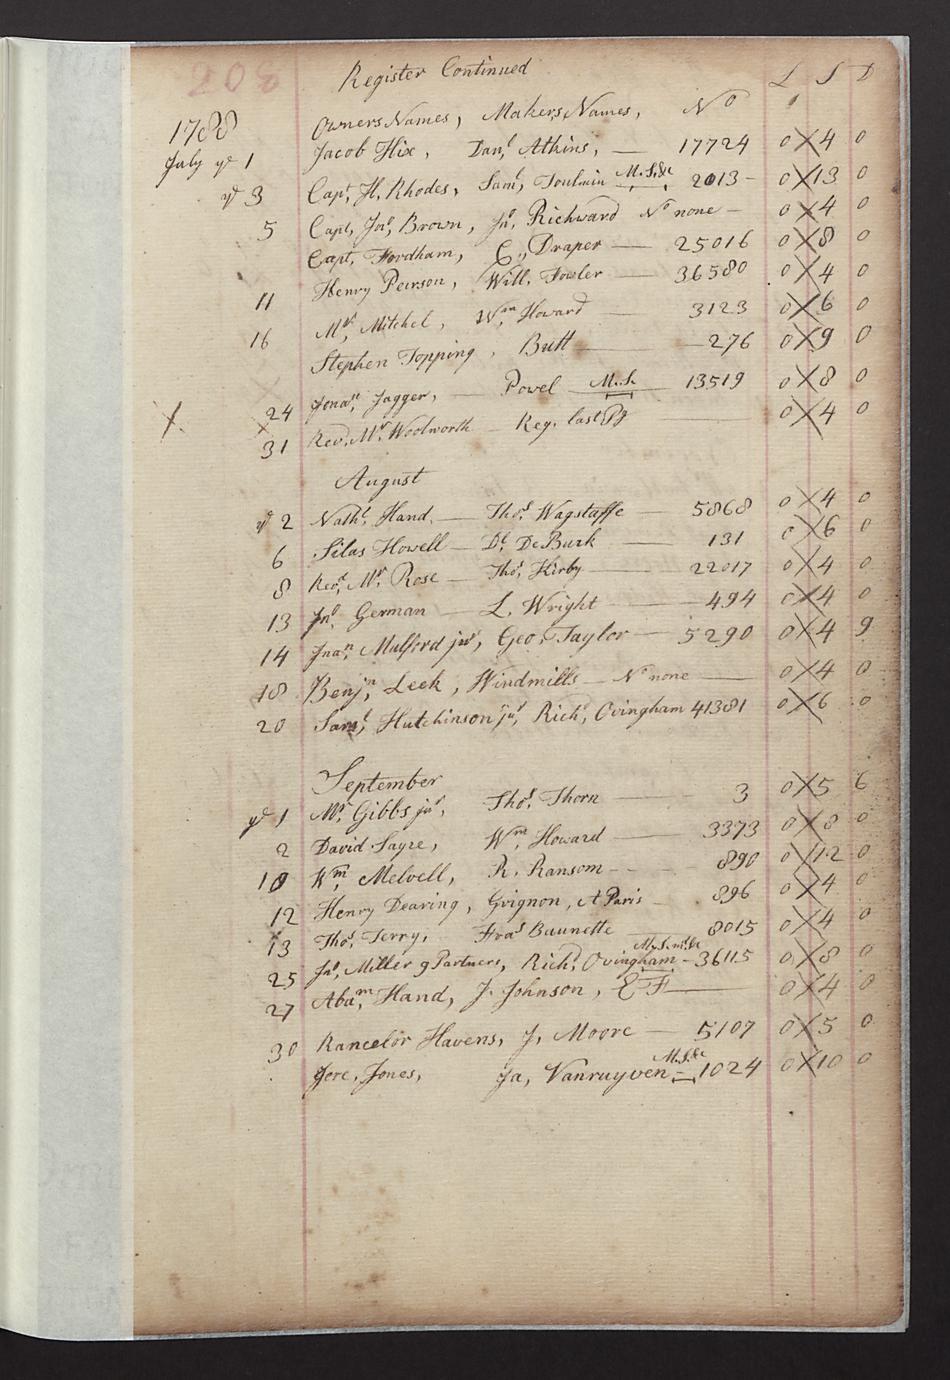 208
Register Continued L S D
1788 Owners Names, Makers Names, No
July ye 1 Jacob Hix, Danl, Atkins, — 17724 0 4 0
ye 3 Capt, H, Rhodes, Saml, Toulmin M.S.&c 2013 - 0 13 0
5 Capt, Jno, Brown, Jn, Richward No none - 0 4 0
Capt, Fordham, C., Draper — 25016 0 8 0
Henry Peirson, Will, Fowler — 36580 0 4 0
11 Mr, Mitchel, Wm, Howard — 3123 0 6 0
16 Stephen Topping, Butt — 276 0 9 0
24 Jonan, Jagger, — Powel — M.S. — 13519 0 8 0
31 Rev, Mr, Woolworth — Reg, last Pg 0 4 0
August
ye 2 Nathl, Hand, — Thos, Wagstaffe — 5868 0 4 0
6 Silas Howell — Dl, De Burk — 131 0 6 0
8 Revd, Mr, Rose — Thos, Kirby — 22017 0 4 0
13 Jno, German — L. Wright — 494 0 4 0
14 Jnan, Mulford jur, Geo, Taylor — 5290 0 4 9
18 Benjn, Leek, Windmills — No none — 0 4 0
20 Saml, Hutchinson jur, Richd, Ovingham 41381 0 6 0
September
ye 1 Mr, Gibbs jur, Thos, Thorn — 3 0 5 6
2 David Sayre, Wm, Howard — 3373 0 8 0
10 Wm, Melvell, R. Ransom - - - 890 0 12 0
12 Henry Dearing, Grignon, A Paris — 896 0 4 0
13 Thos, Terry, Fras Buunette — 8015 0 4 0
25 Jno, Miller & Partners, Richd, Ovingham - 36115 0 8 0
27 Abam, Hand, J. Johnson, E F — 0 4 0
30 Rancelor Havens, J, Moore — 5107 0 5 0
Jere, Jones, Ja, Vanruyven - M.S.&c 1024 0 10 0